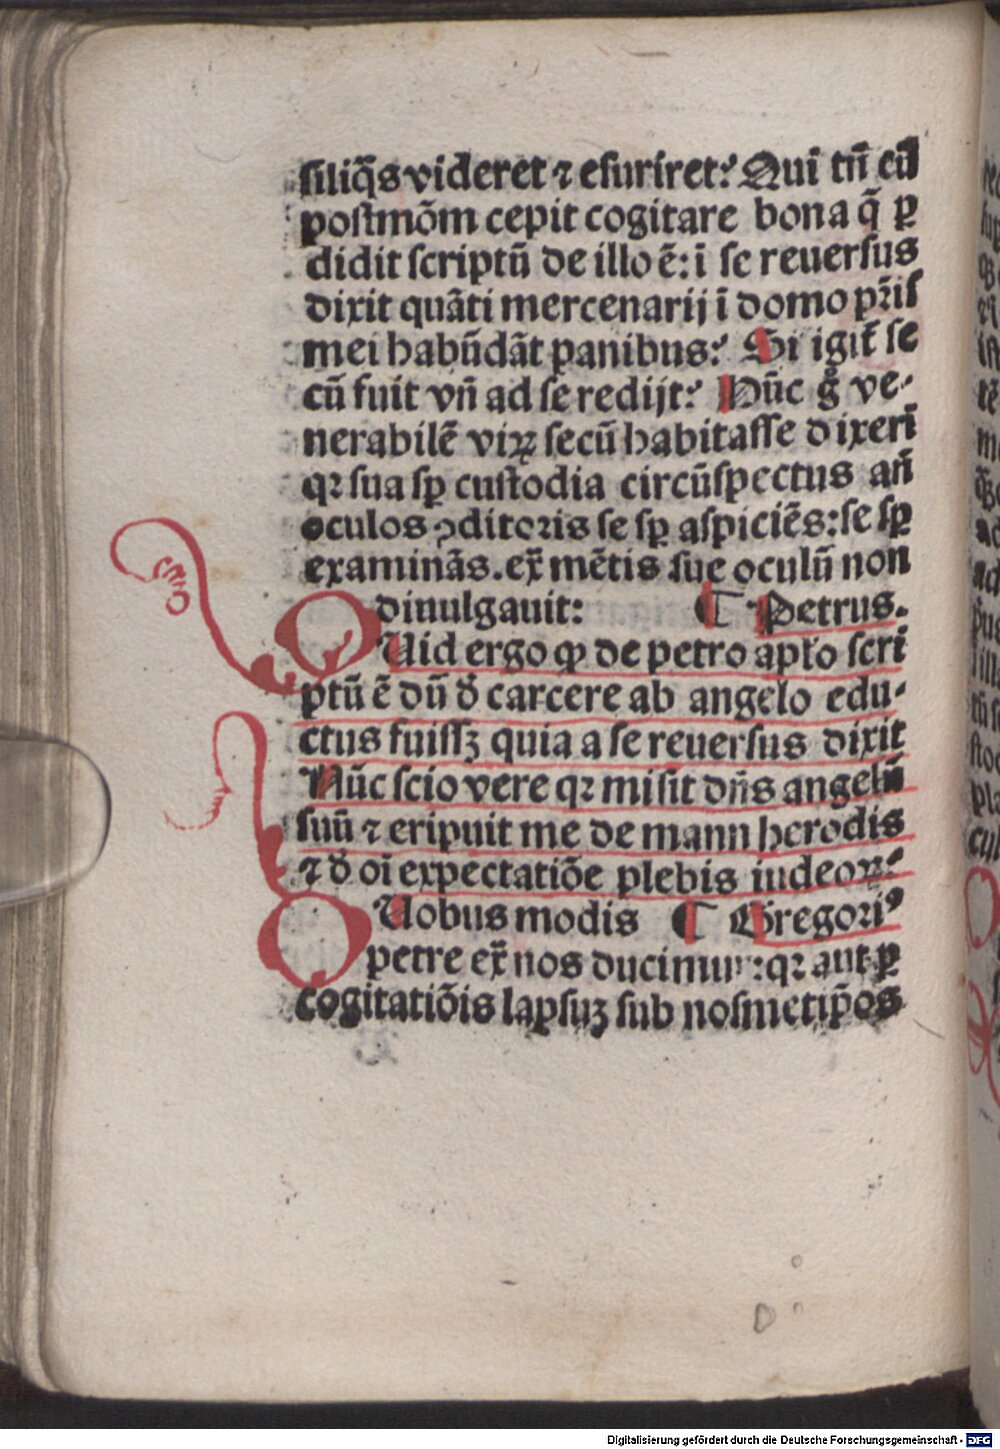 siliq̃s videret ⁊ esuriret: Qui tñ cũ
postmõm cepit cogitare bona q̃ ꝑ
didit scriptũ de illo ẽ: ĩ se reuersus
dixit quãti mercenarij ĩ domo pr̃is
mei habũdãt panibus: Si igit̃ se
cũ fuit vñ ad se redijt: Hũc g̊ ve-
nerabilẽ viꝝ secũ habitasse dixerĩ
qꝛ sua sꝑ custodia circũspectus añ
oculos ꝯditoris se sꝑ aspiciẽs: se sꝑ
examinãs. ex̃ mẽtis sue oculũ non
diuulgauit: ¶ Petrus.
QUid ergo ꝙ de petro apl̃o scri
ptũ ẽ dũ d̊ carcere ab angelo edu-
ctus fuissꝫ quia a se reuersus dixit
Nũc scio vere qꝛ misit dñs angelũ
suũ ⁊ eripuit me de mann herodis
⁊ d̊ oĩ expectatiõe plebis iudeoꝝ:
DUobus modis ¶ Gregoriꝰ
petre ex̃ nos ducimur: qꝛ aut ꝑ
cogitatiõis lapsuꝫ sub nosmetip̃os
Digitalisierung gefördert durch die Deutsche Forschungsgemeinschaft - DFG